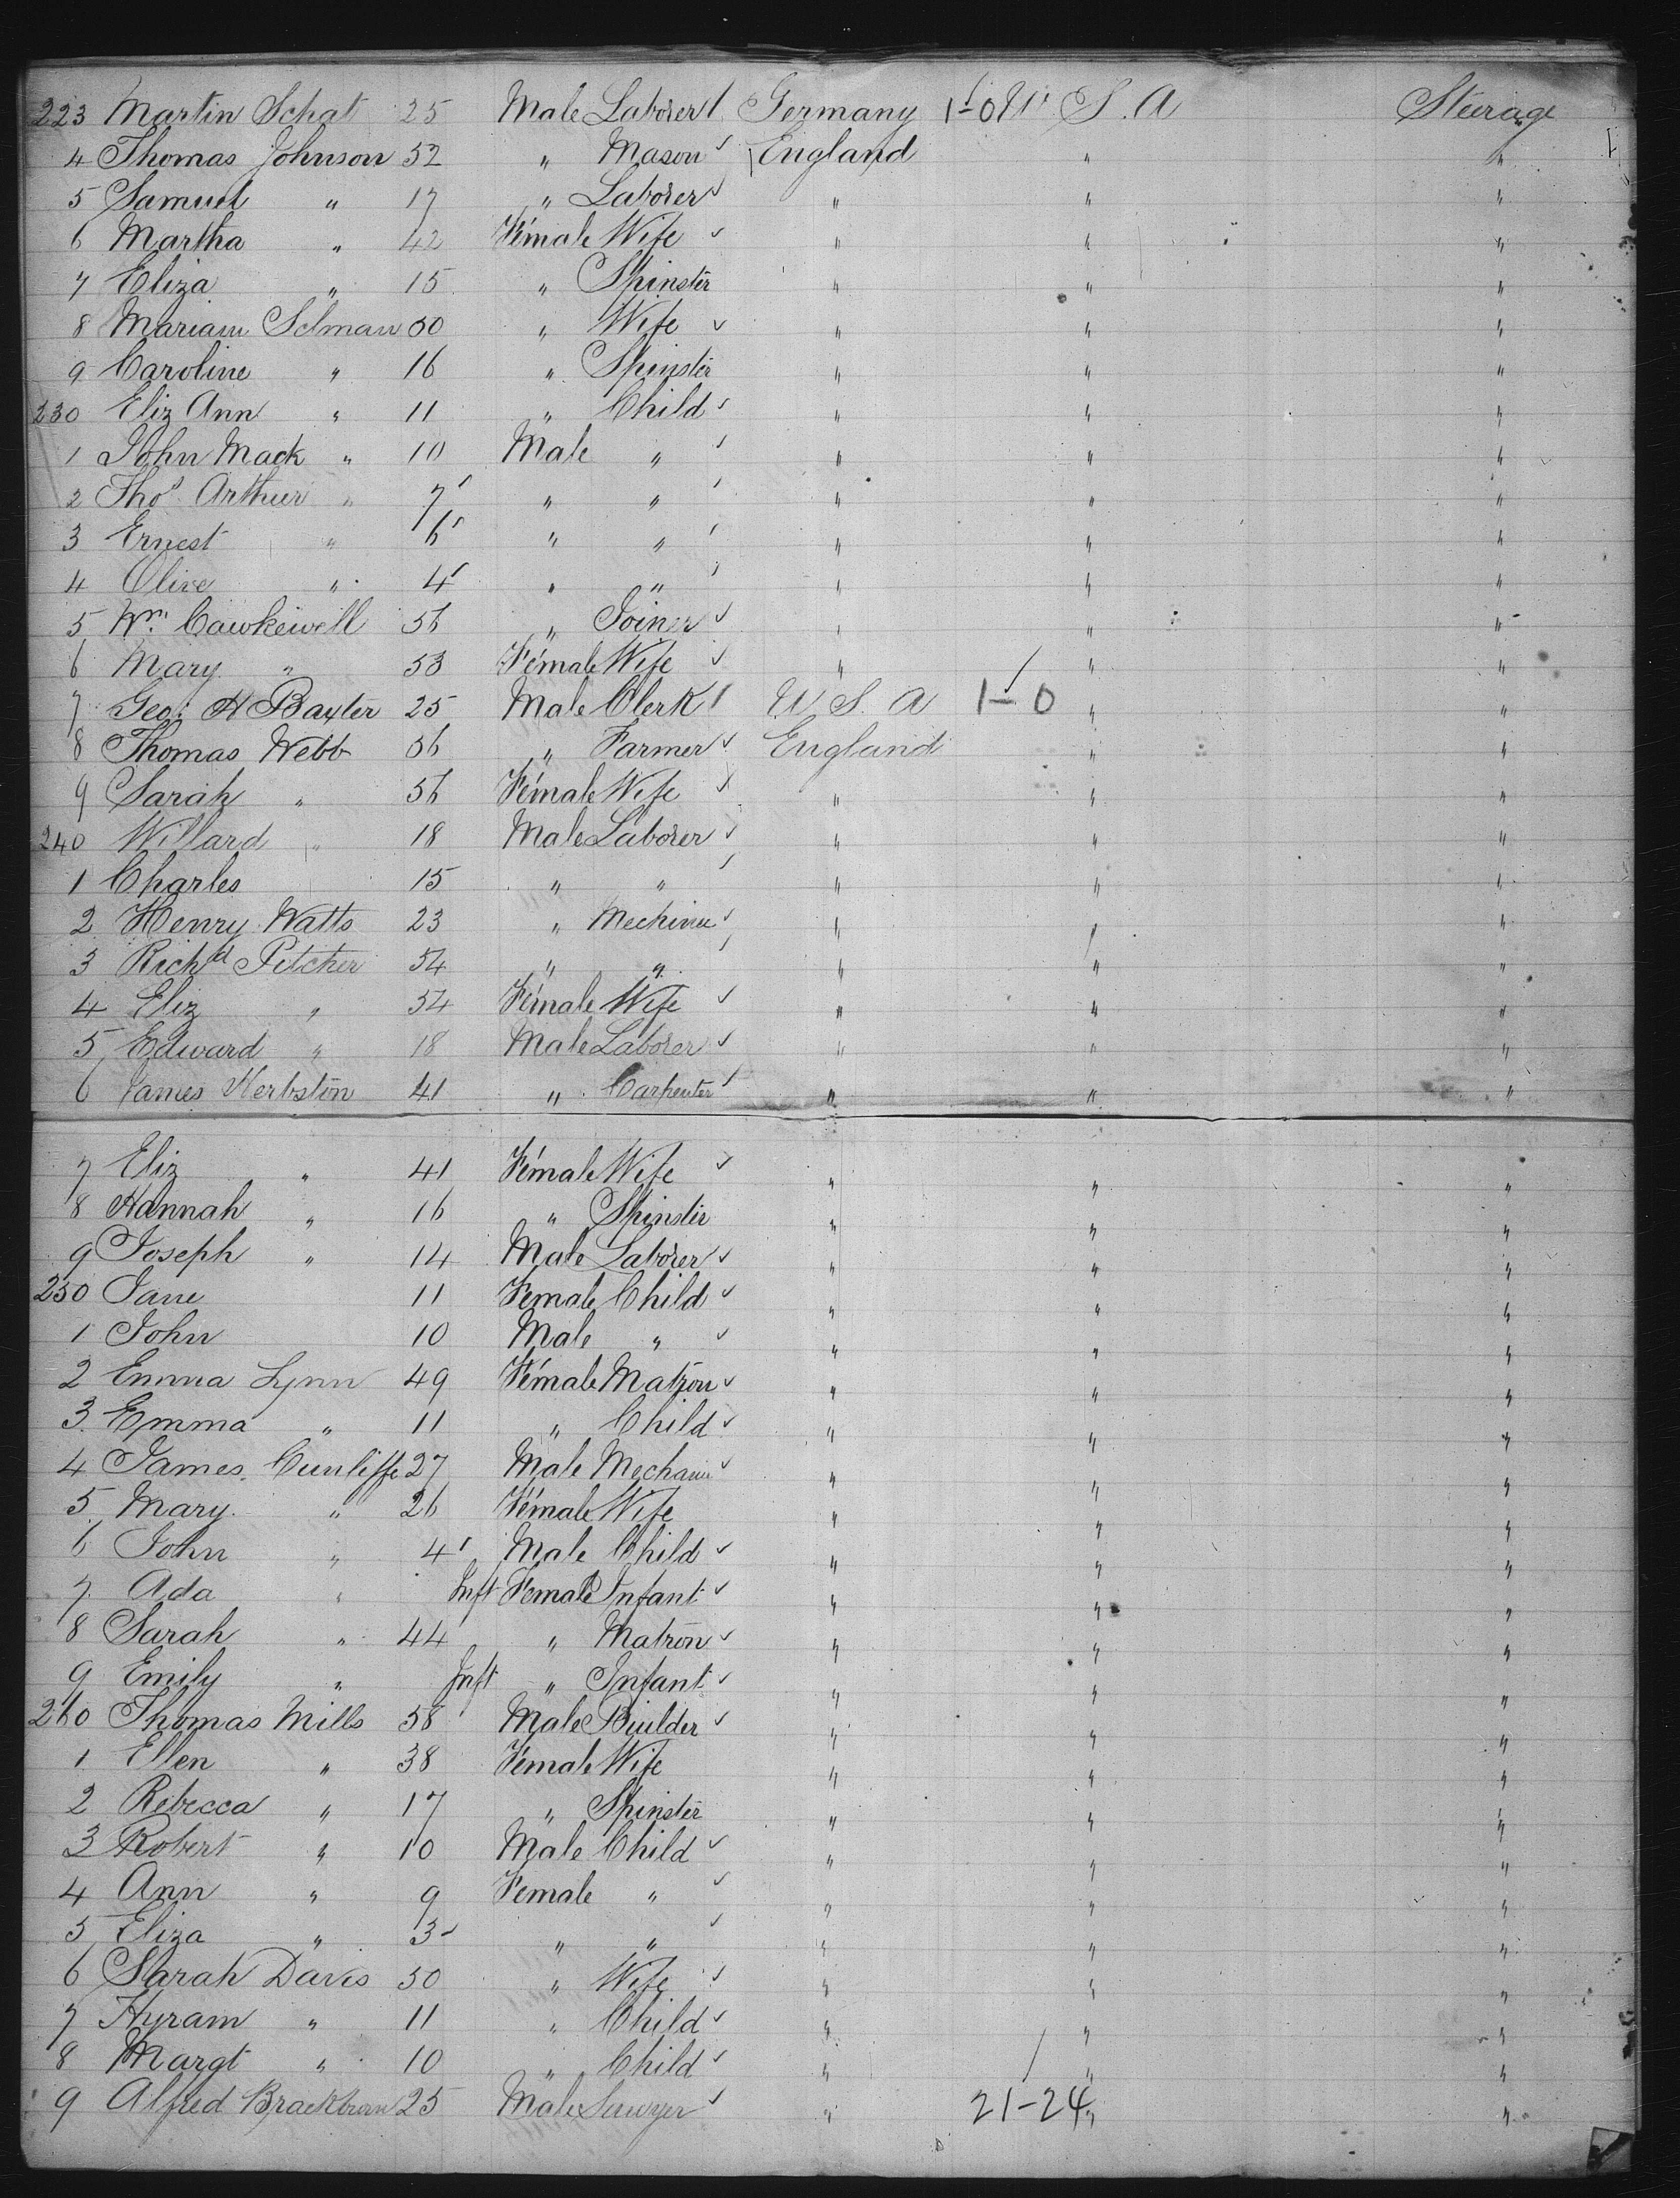 223 Martin Schat 25 Male Laborer Germany 1-0 U. S. A Steerage
4 Thomas Johnson 52 " Mason England " "
5 Samuel " 17 " Laborer " " "
6 Martha " 42 Female Wife " " "
7 Eliza " 15 " Spinster " " "
8 Mariam Selman 50 " Wife " " "
9 Caroline " 16 " Spinster " " "
230 Eliz Ann " 11 " Child " " "
1 John Mack " 10 Male " " " "
2 Thos Arthur " 7 " " " " "
3 Ernest " 6 " " " " "
4 Olive " 4 " " " " "
5 Wm. Cawkewell 56 " Joiner " " "
6 Mary " 53 Female Wife " " "
7 Geo: H Baxter 25 Male Clerk U S. A 1-0 " "
8 Thomas Webb 56 " Farmer England " "
9 Sarah " 56 Female Wife " " "
240 Willard " 18 Male Laborer " " "
1 Charles 15 " " " " "
2 Henry Watts 23 " " " "
3 Richd Pitcher 54 " " " " "
4 Eliz " 54 Female Wife " " "
5 Edward " 18 Male Laborer " " "
6 James Herbston 41 " Carpenter " " "
7 Eliz " 41 Female Wife " " "
8 Hannah " 16 " Spinster " " "
9 Joseph " 14 Male Laborer " " "
250 Jane 11 Female Child " " "
1 John 10 Male " " " "
2 Emma Lynn 49 Female Matron " " "
3 Emma " 11 " Child " " "
4 James Cunliffe 27 Male Mechanic " " "
5 Mary " 26 Female Wife " " "
6 John " 4 Male Child " " "
7 Ada " Inft Female Infant " " "
8 Sarah " 44 " Matron " " "
9 Emily " Inft " Infant " " "
260 Thomas Mills 58 Male Builder " " "
1 Ellen " 38 Female Wife " " "
2 Rebecca " 17 " Spinster " " "
3 Robert " 10 Male Child " " "
4 Ann " 9 Female " " " "
5 Eliza " 3 " " " " "
6 Sarah Davis 30 " Wife " " "
7 Hyram " 11 " Child " " "
8 Margt " 10 " Child " " "
9 Alfred 25 Male Sawyer " 21-24 " "